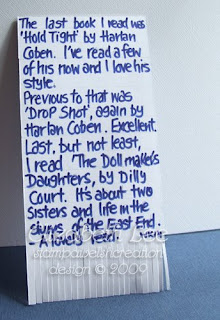 The last book I read was
'Hold Tight' by Harlan
Coben. I've read a few
of his now and I love his
style.
Previous to that was
'Drop Shot', again by
Harlan Coben. Excellent.
Last, but not least,
I read 'The Dollmaker's
Daughters, by Dilly
Court. It's about two
Sisters and life in the
slums of the East End.
A lovely read!
stampawethcreation
design © 2009